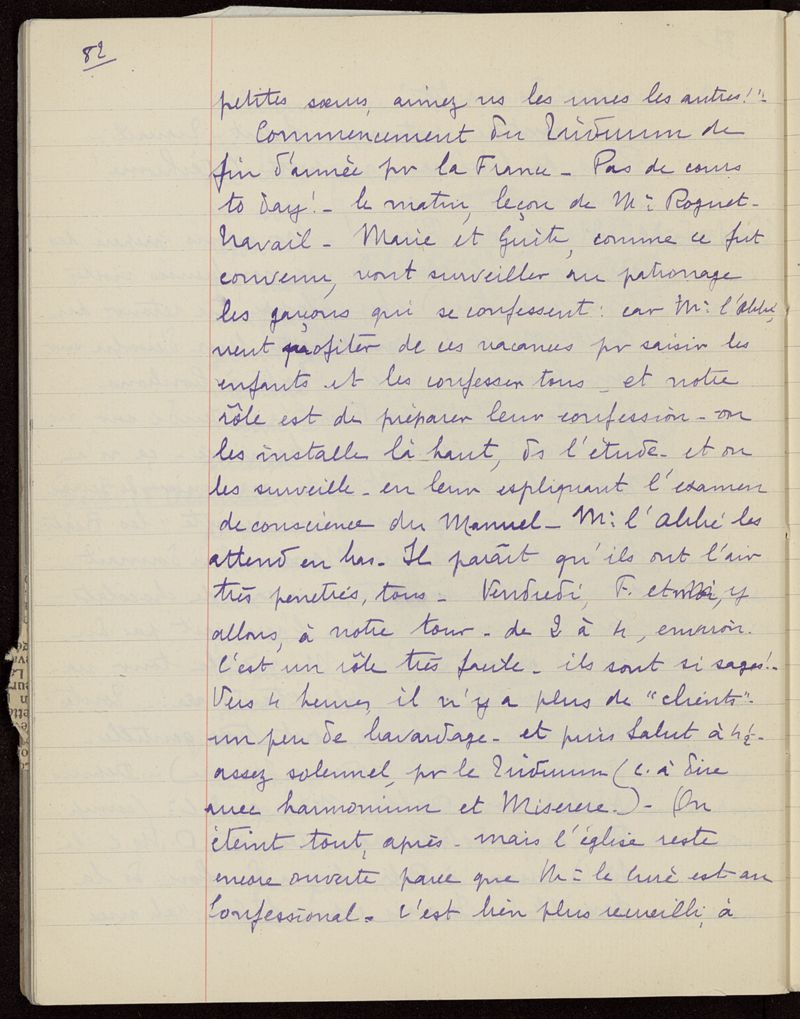 82
petites sœurs, aimez ns les unes les autres!"-
Commencement du Triduum de
fin d'année pr la France - Pas de cours
to day! - le matin, leçon de Mr Roguet -
Travail - Marie et Guite, comme ce fut
convenu, vont surveiller au patronage
les garçons qui se confessent: car Mr l'Abbé,
veut profiter de ces vacances pr saisir les
enfants et les confesser tous - et notre
rôle est de préparer leur confession - on
les installe là haut, ds l'étude - et on
les surveille - en leur expliquant l'examen
de conscience du Manuel - Mr l'Abbé les
attend en bas - Il paraît qu'ils ont l'air
très penetrés, tous - Vendredi, F. et moi, y
allons, à notre tour - de 2 à 4, environ.
C'est un rôle très facile - ils sont si sages! -
Vers 4 heures, il n'y a plus de "clients" -
un peu de bavardage - et puis Salut à 4½ -
assez solennel, pr le Triduum (c. à dire
avec harmonium et Miserere.) - On
éteint tout, après - mais l'église reste
encore ouverte parce que Mr le Curé est au
Confessional - C'est bien plus recueilli, à